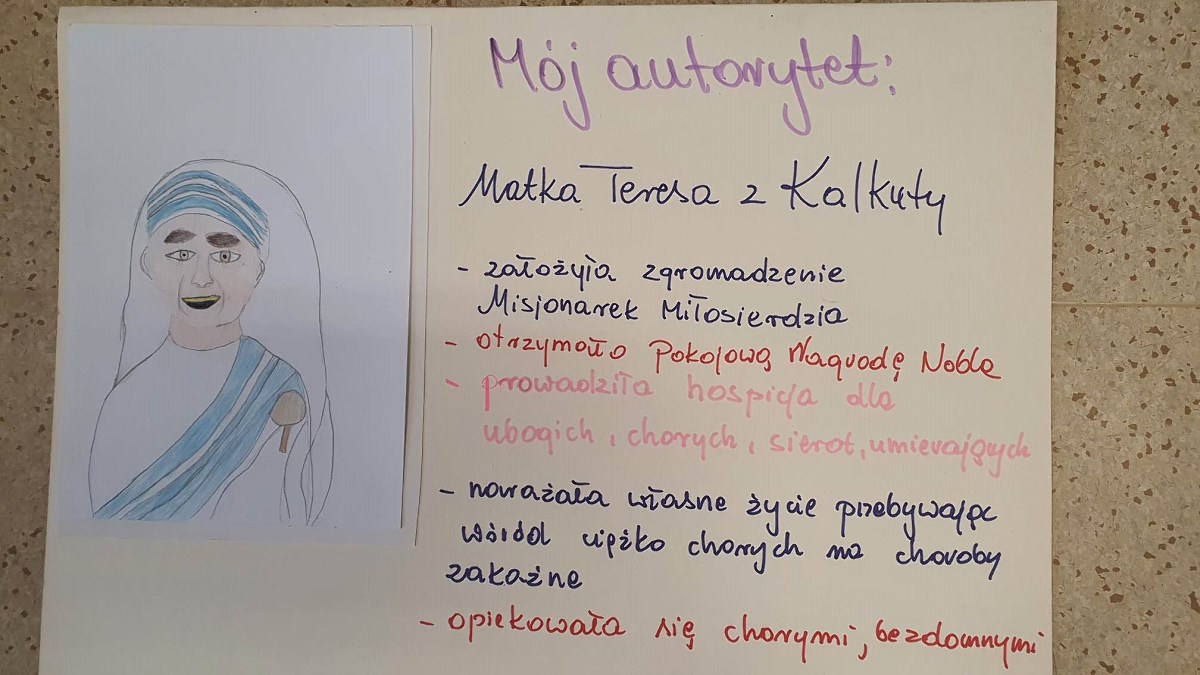 Mój autorytet:
Matka Teresa z Kalkuty
- założyła zgromadzenie
Misjonarek Miłosierdzia
- otrzymała Pokojową Nagrodę Nobla
- prowadziła hospicja dla
ubogich, chorych, sierot, umierających
- narażała własne życie przebywając
wśród ciężko chorych na choroby
zakaźne
- opiekowała się chorymi, bezdomnymi